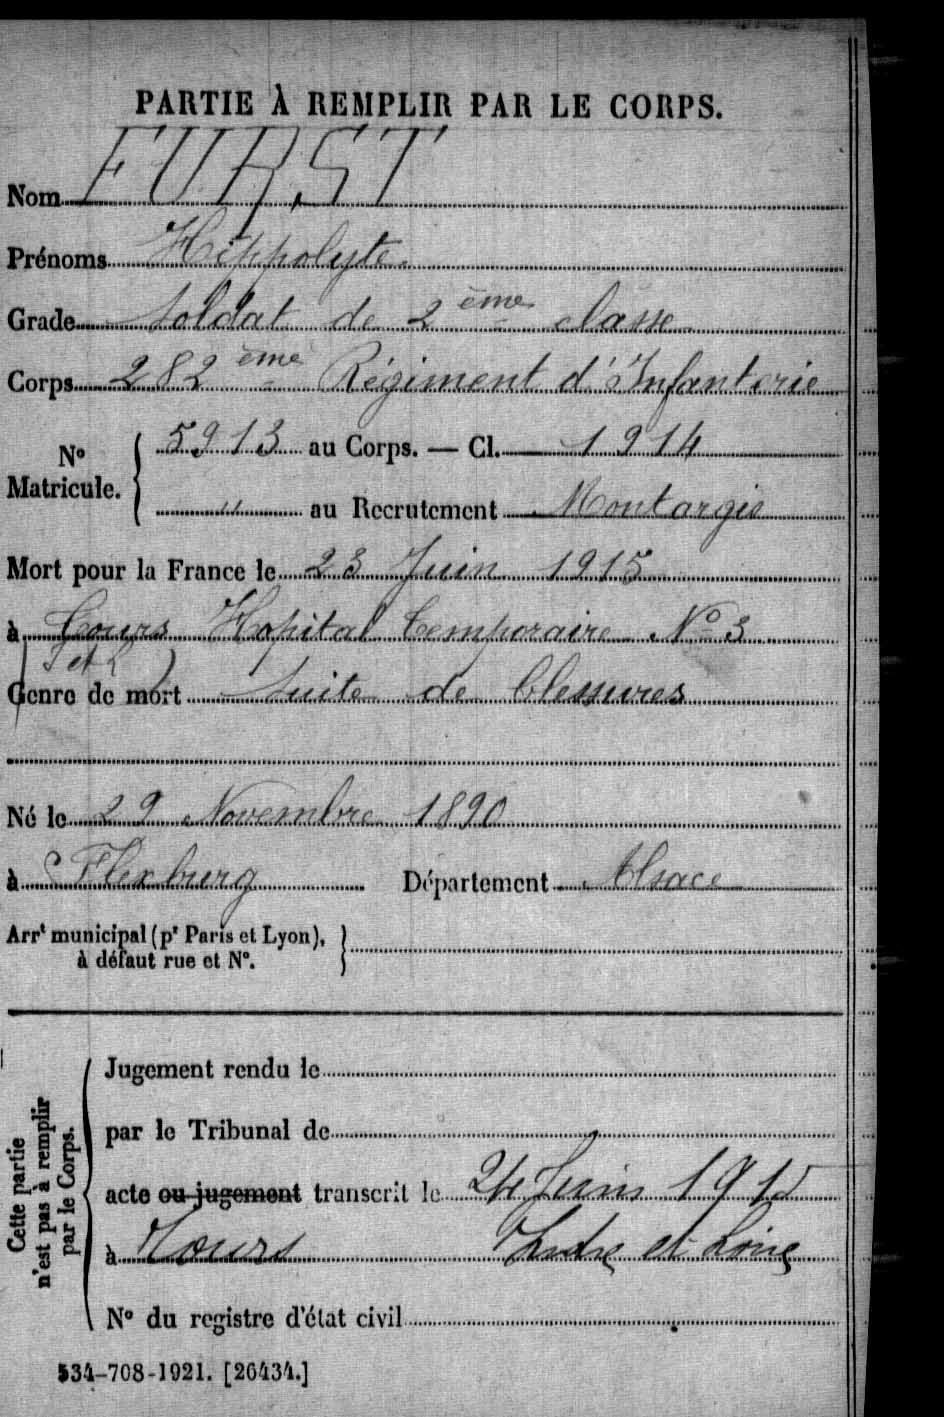 PARTIE À REMPLIR PAR LE CORPS.
Nom FURST
Prénoms Hippolyte
Grade Soldat de 2ème classe
Corps 282ème Régiment d'Infanterie
N° Matricule. { 5913 au Corps. — Cl. 1914
" au Recrutement Montargis
Mort pour la France le 23 Juin 1915
à Tours Hopital temporaire N° 3
(I et L)
Genre de mort Suite de blessures
Né le 29 Novembre 1890
à Flexburg Département Alsace
Arrt municipal (pr Paris et Lyon), à défaut rue et N°. }
Cette partie n'est pas à remplir par le Corps.
Jugement rendu le
par le Tribunal de
acte ou jugement transcrit le 24 Juin 1915
à Tours Indre et Loire
N° du registre d'état civil
534-708-1921. [26434.]